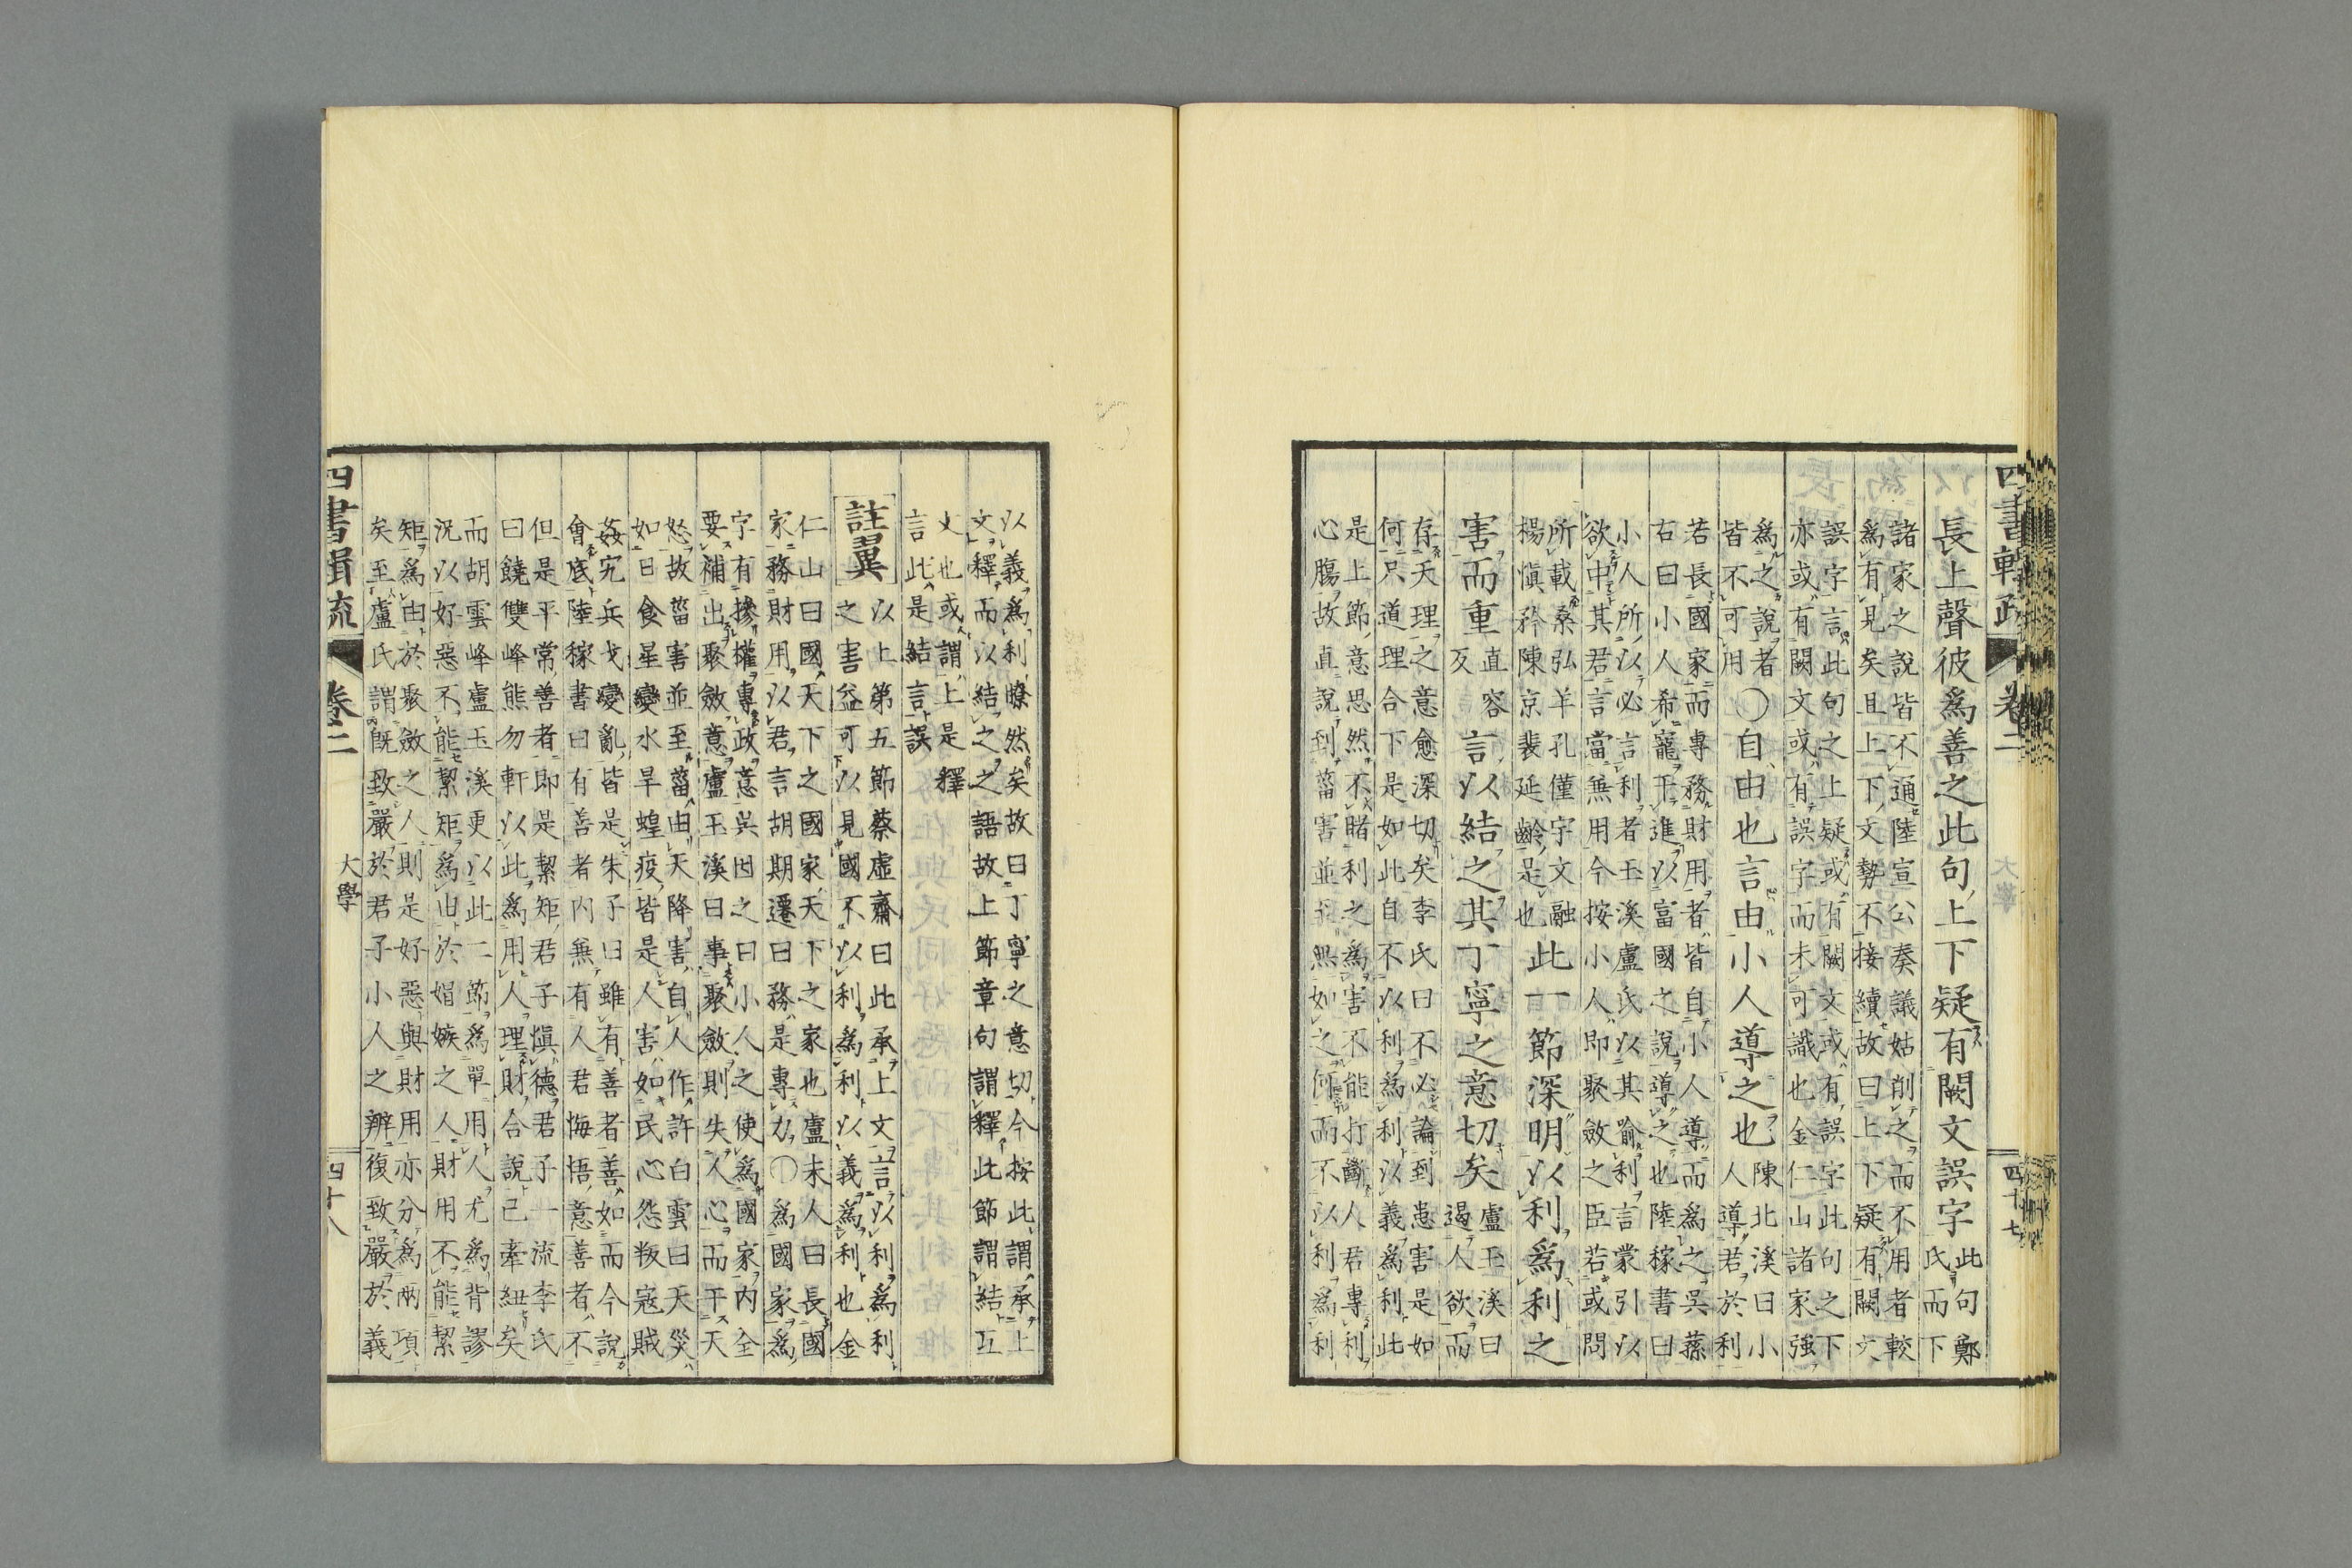 四書輯疏
卷二
四十七
長上聲彼爲善之此句上下疑有闕文誤字
此句鄭
氏而下
諸家之說皆不通陸宣公奏議姑削之而不用者較
爲有見矣且上下文勢不接續故曰上下疑有闕文
誤字言此句之上疑或有闕文或有誤字此句之下
亦或有闕文或有誤字而未可識也金仁山諸家强
爲之說者
皆不可用
〇自由也言由小人導之也
陳北溪曰小
人導君於利
若長國家而專務財用者皆自小人導而爲之吳蓀
右曰小人希寵干進以富國之說導之也陸稼書曰
小人所以必言利者玉溪盧氏以其喩利言蒙引以
欲中其君言當無用今按小人即聚斂之臣若或問
所載桑弘羊孔僅宇文融
楊愼矜陳京裴延齡是也
此一節深明以利爲利之
害而重
直容
反
言以結之其丁寧之意切矣
盧玉溪曰
遏人欲而
存天理之意愈深切矣李氏曰不必論到患害是如
何只道理合下是如此自不以利爲利以義爲利此
是上節意思然不賭利之爲害不能打斷人君專利
心膓故直說到菑害並至無如之何而不以利爲利
以義爲利瞭然矣故曰丁寧之意切今按此謂承上
文釋而以結之之語故上節章句謂釋此節謂結互
文也或謂上是釋
言此是結言誤
註翼
以上第五節蔡虛齋曰此承上文言以利爲利
之害益可以見國不以利爲利以義爲利也金
仁山曰國天下之國家天下之家也盧未人曰長國
家務財用以君言胡期遷曰務是專力〇爲國家爲
字有摻權專政意吳因之曰小人之使爲國家內全
要補出聚斂意盧玉溪曰事聚斂則失人心而干天
怒故菑害並至菑由天降害自人作許白雲曰天災
如日食星變水旱蝗疫皆是人害如民心怨叛寇賊
姦宄兵戈變亂皆是朱子曰雖有善者善如而今說
會底陸稼書曰有善者內無有人君悔悟意善者不
但是平常善者即是絜矩君子愼德君子一流李氏
曰饒雙峰熊勿軒以此爲用人理財合說已牽紐矣
而胡雲峰盧玉溪更以此二節爲單用人尤爲背謬
況以好惡不能絜矩爲由於娼嫉之人財用不能絜
矩爲由於聚斂之人則是好惡與財用亦分爲兩項
矣至盧氏謂旣致嚴於君子小人之辨復致嚴於義
四書輯疏
卷二
大學
四十八